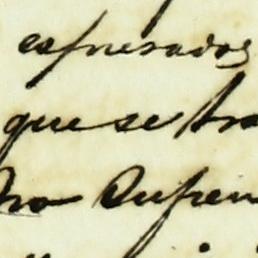 espresados
que se tra
Suprem